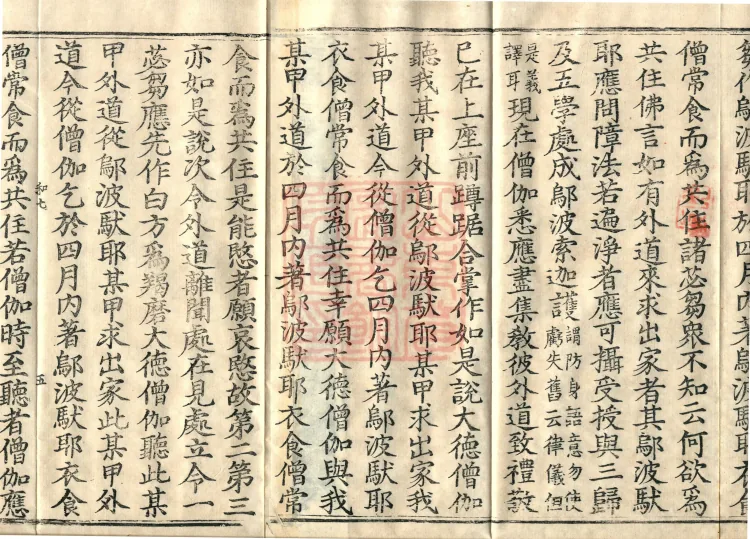 芻作鄔波馱耶於四月內著鄔波馱耶衣食
僧常食而爲共住諸苾芻衆不知云何欲爲
共住佛言如有外道來求出家者其鄔波馱
耶應問障法若遍淨者應可攝受授與三歸
及五學處成鄔波索迦護謂防身語意勿使虧失舊云律儀但
是義譯耳現在僧伽悉應盡集敎彼外道致禮敬
已在上座前蹲踞合掌作如是說大德僧伽
聽我某甲外道從鄔波馱耶某甲求出家我
某甲外道今從僧伽乞四月內著鄔波馱耶
衣食僧常食而爲共住幸願大德僧伽與我
某甲外道於四月內著鄔波馱耶衣食僧常
食而爲共住是能愍者願哀愍故第二第三
亦如是說次令外道離聞處在見處立令一
苾芻應先作白方爲羯磨大德僧伽聽此某
甲外道從鄔波馱耶某甲求出家此某甲外
道今從僧伽乞於四月內著鄔波馱耶衣食
和七 五
僧常食而爲共住若僧伽時至聽者僧伽應